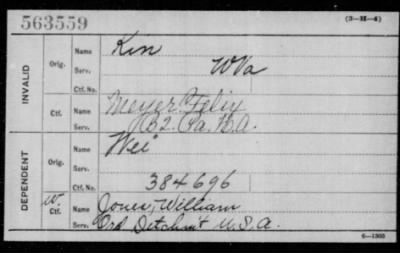 563559 (3-H-4)
INVALID Orig. Name Kin
Serv. WVa
Ctf. No.
Ctf. Name Meyer, Felix
Serv. 152. Pa. H.A.
DEPENDENT Orig. Name Wei
Serv.
Ctf. No. 384696
W. Ctf. Name Jones, William
Serv. Ord Detchmt U.S.A.
6-1305